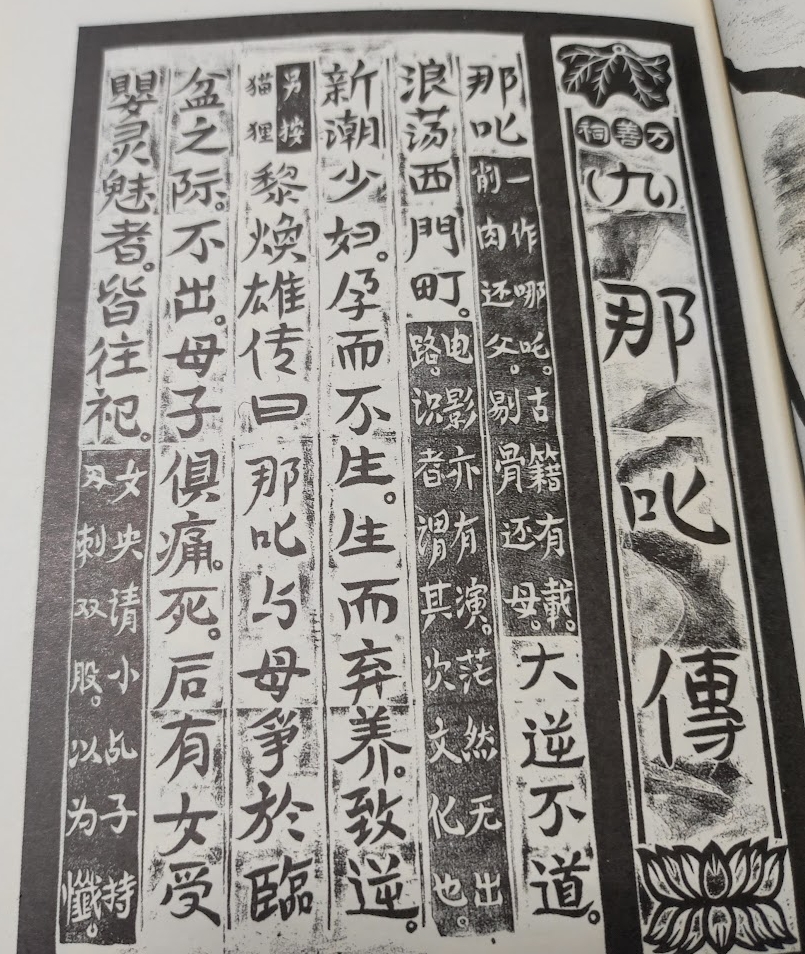 万善祠
（九）
那叱傳
那叱
一作哪吒。古籍有載。
削肉还父。剔骨还母。
大逆不道。
浪荡西門町。
电影亦有演。茫然无出
路。识者谓其次文化也。
新潮少妇。孕而不生。生而弃养。致逆。
另按
猫狸
黎焕雄传曰那叱与母爭於臨
盆之际。不出。母子俱痛。死。后有女受
嬰灵魅者。皆往祀。
女央请小乩子持
刃刺双股。以为懺。